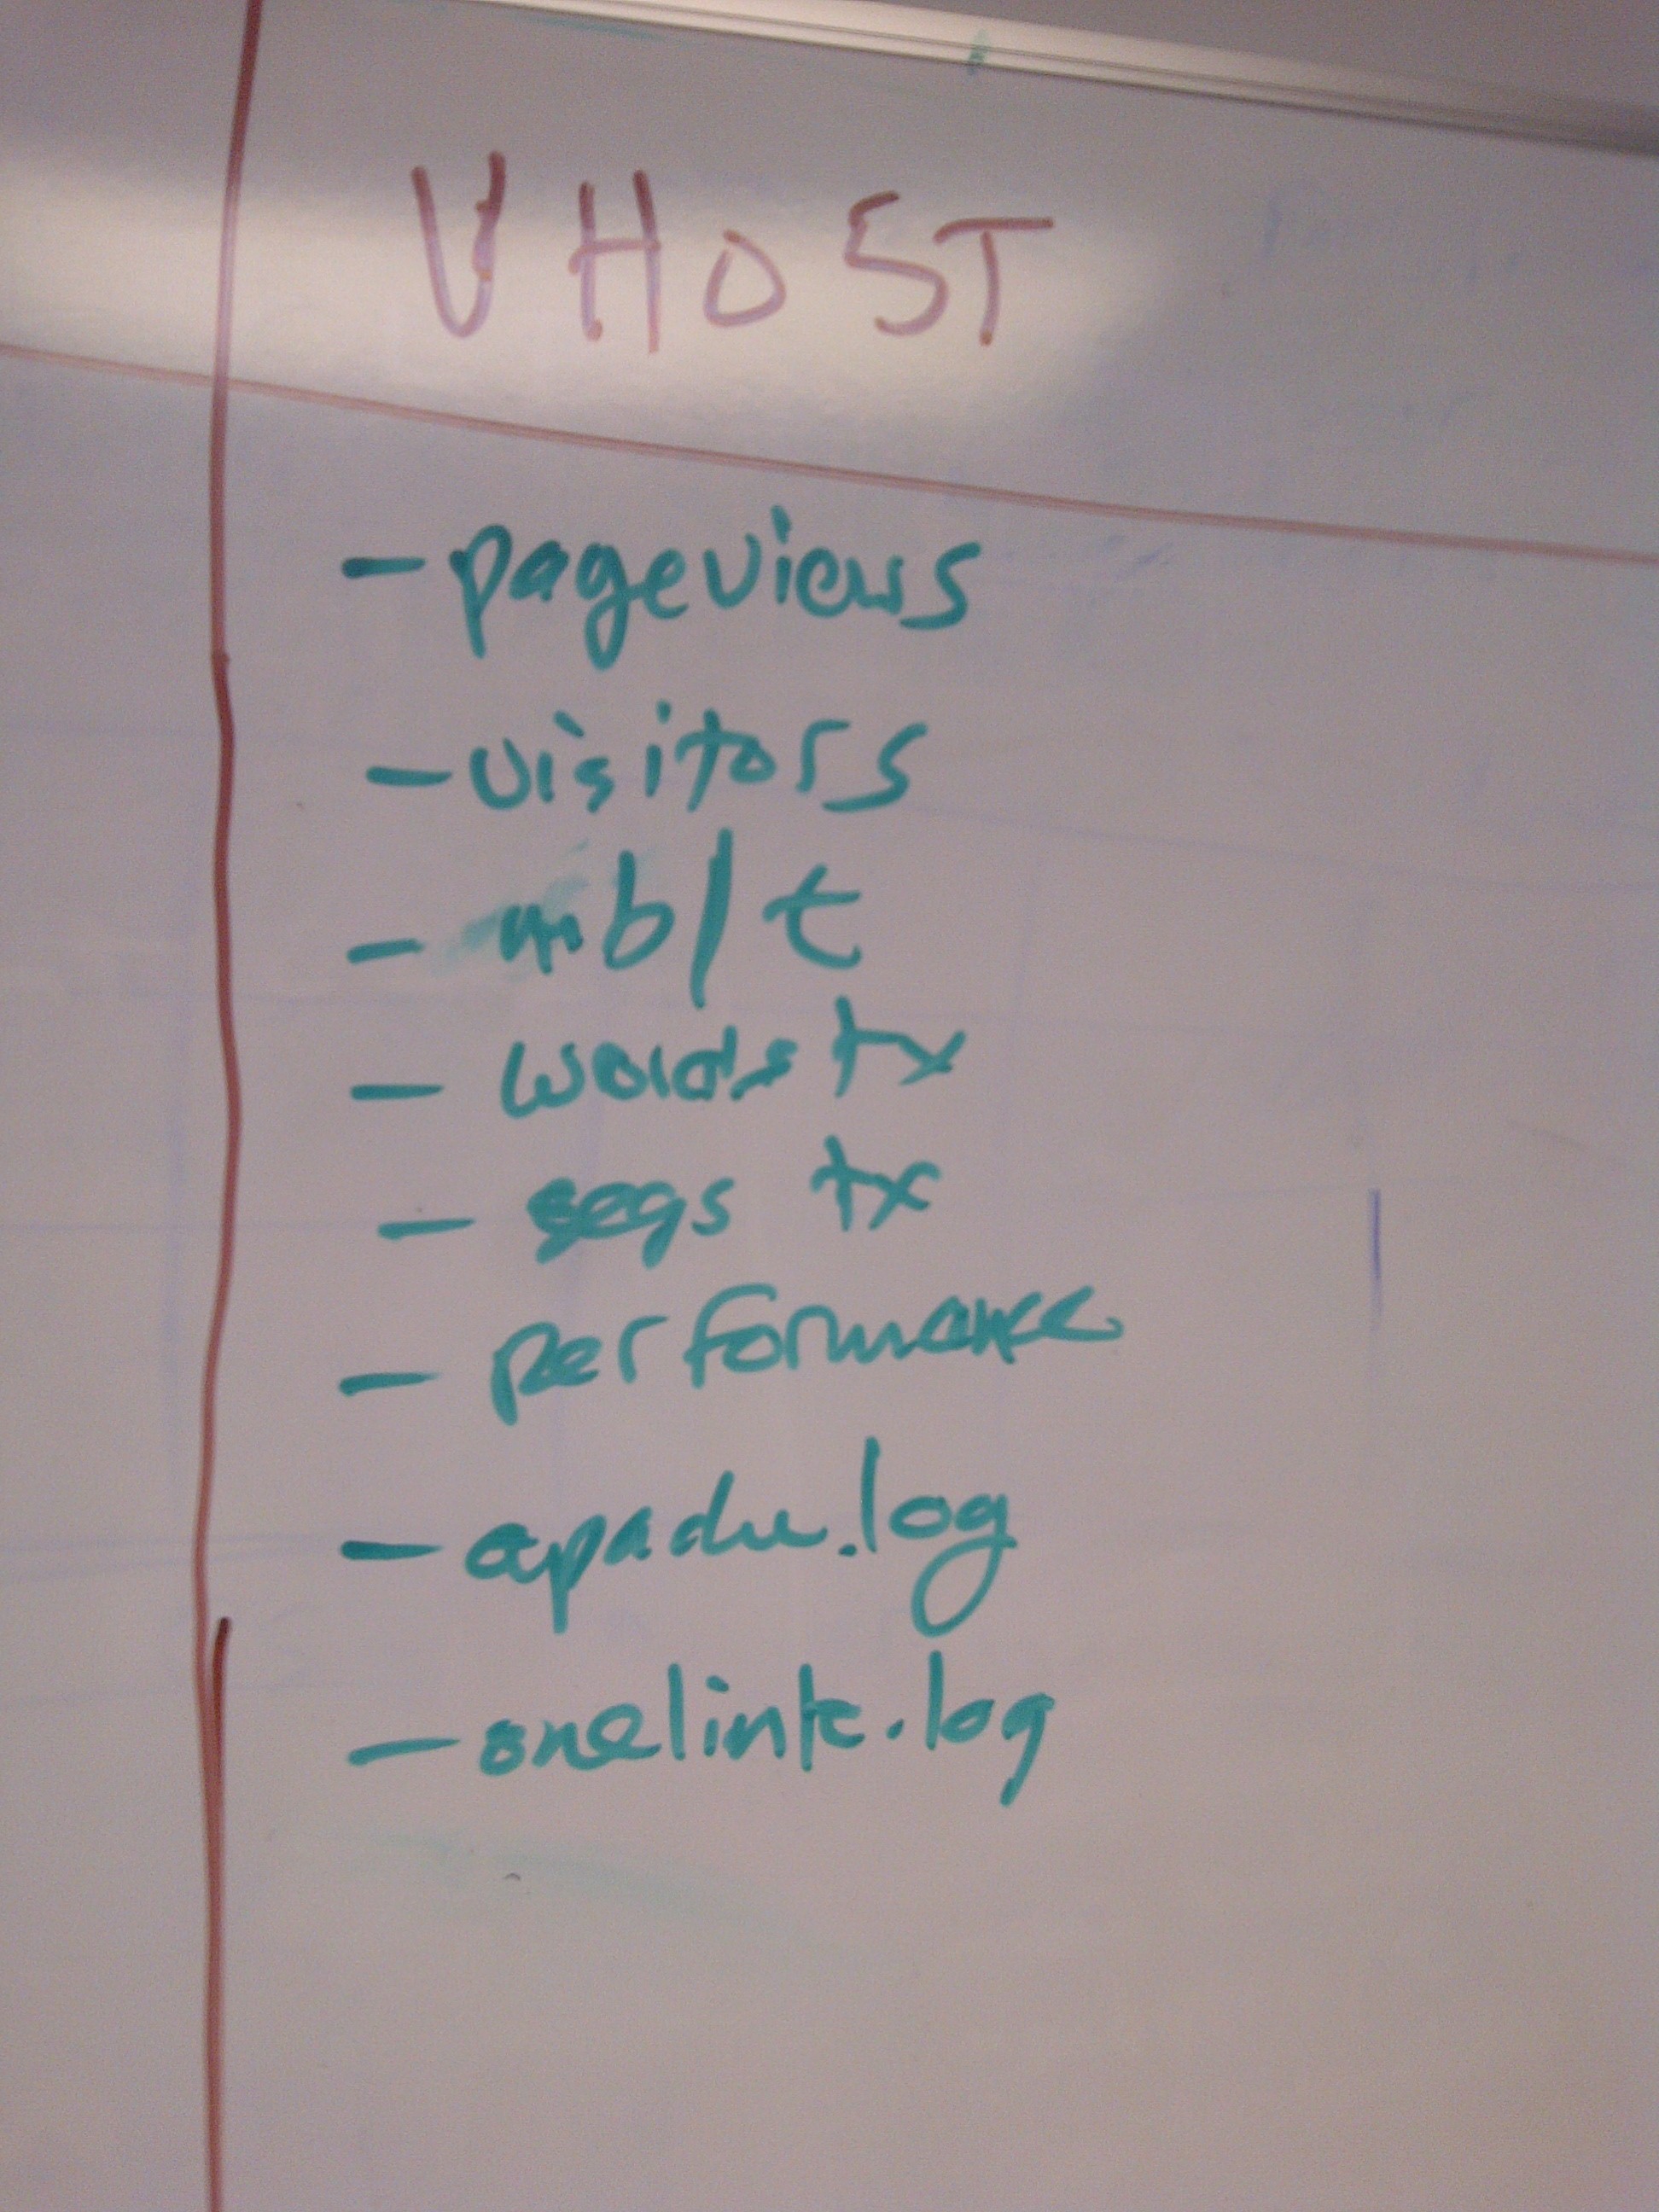 VHOST
- pageviews
- visitors
- mb/t
- words tx
- segs tx
- performance
- apache.log
- onelink.log